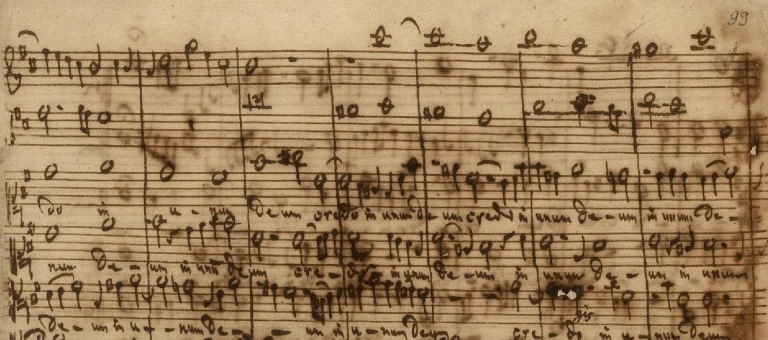 99
do in u - num de um credo in unum de - um credo in unum de - um in unum De -
num De - um in unū de um cre - do in unum de - um. in unum De - um in unum
De - um in u - num De - um in u - num Deum cre - do in u - num
gis